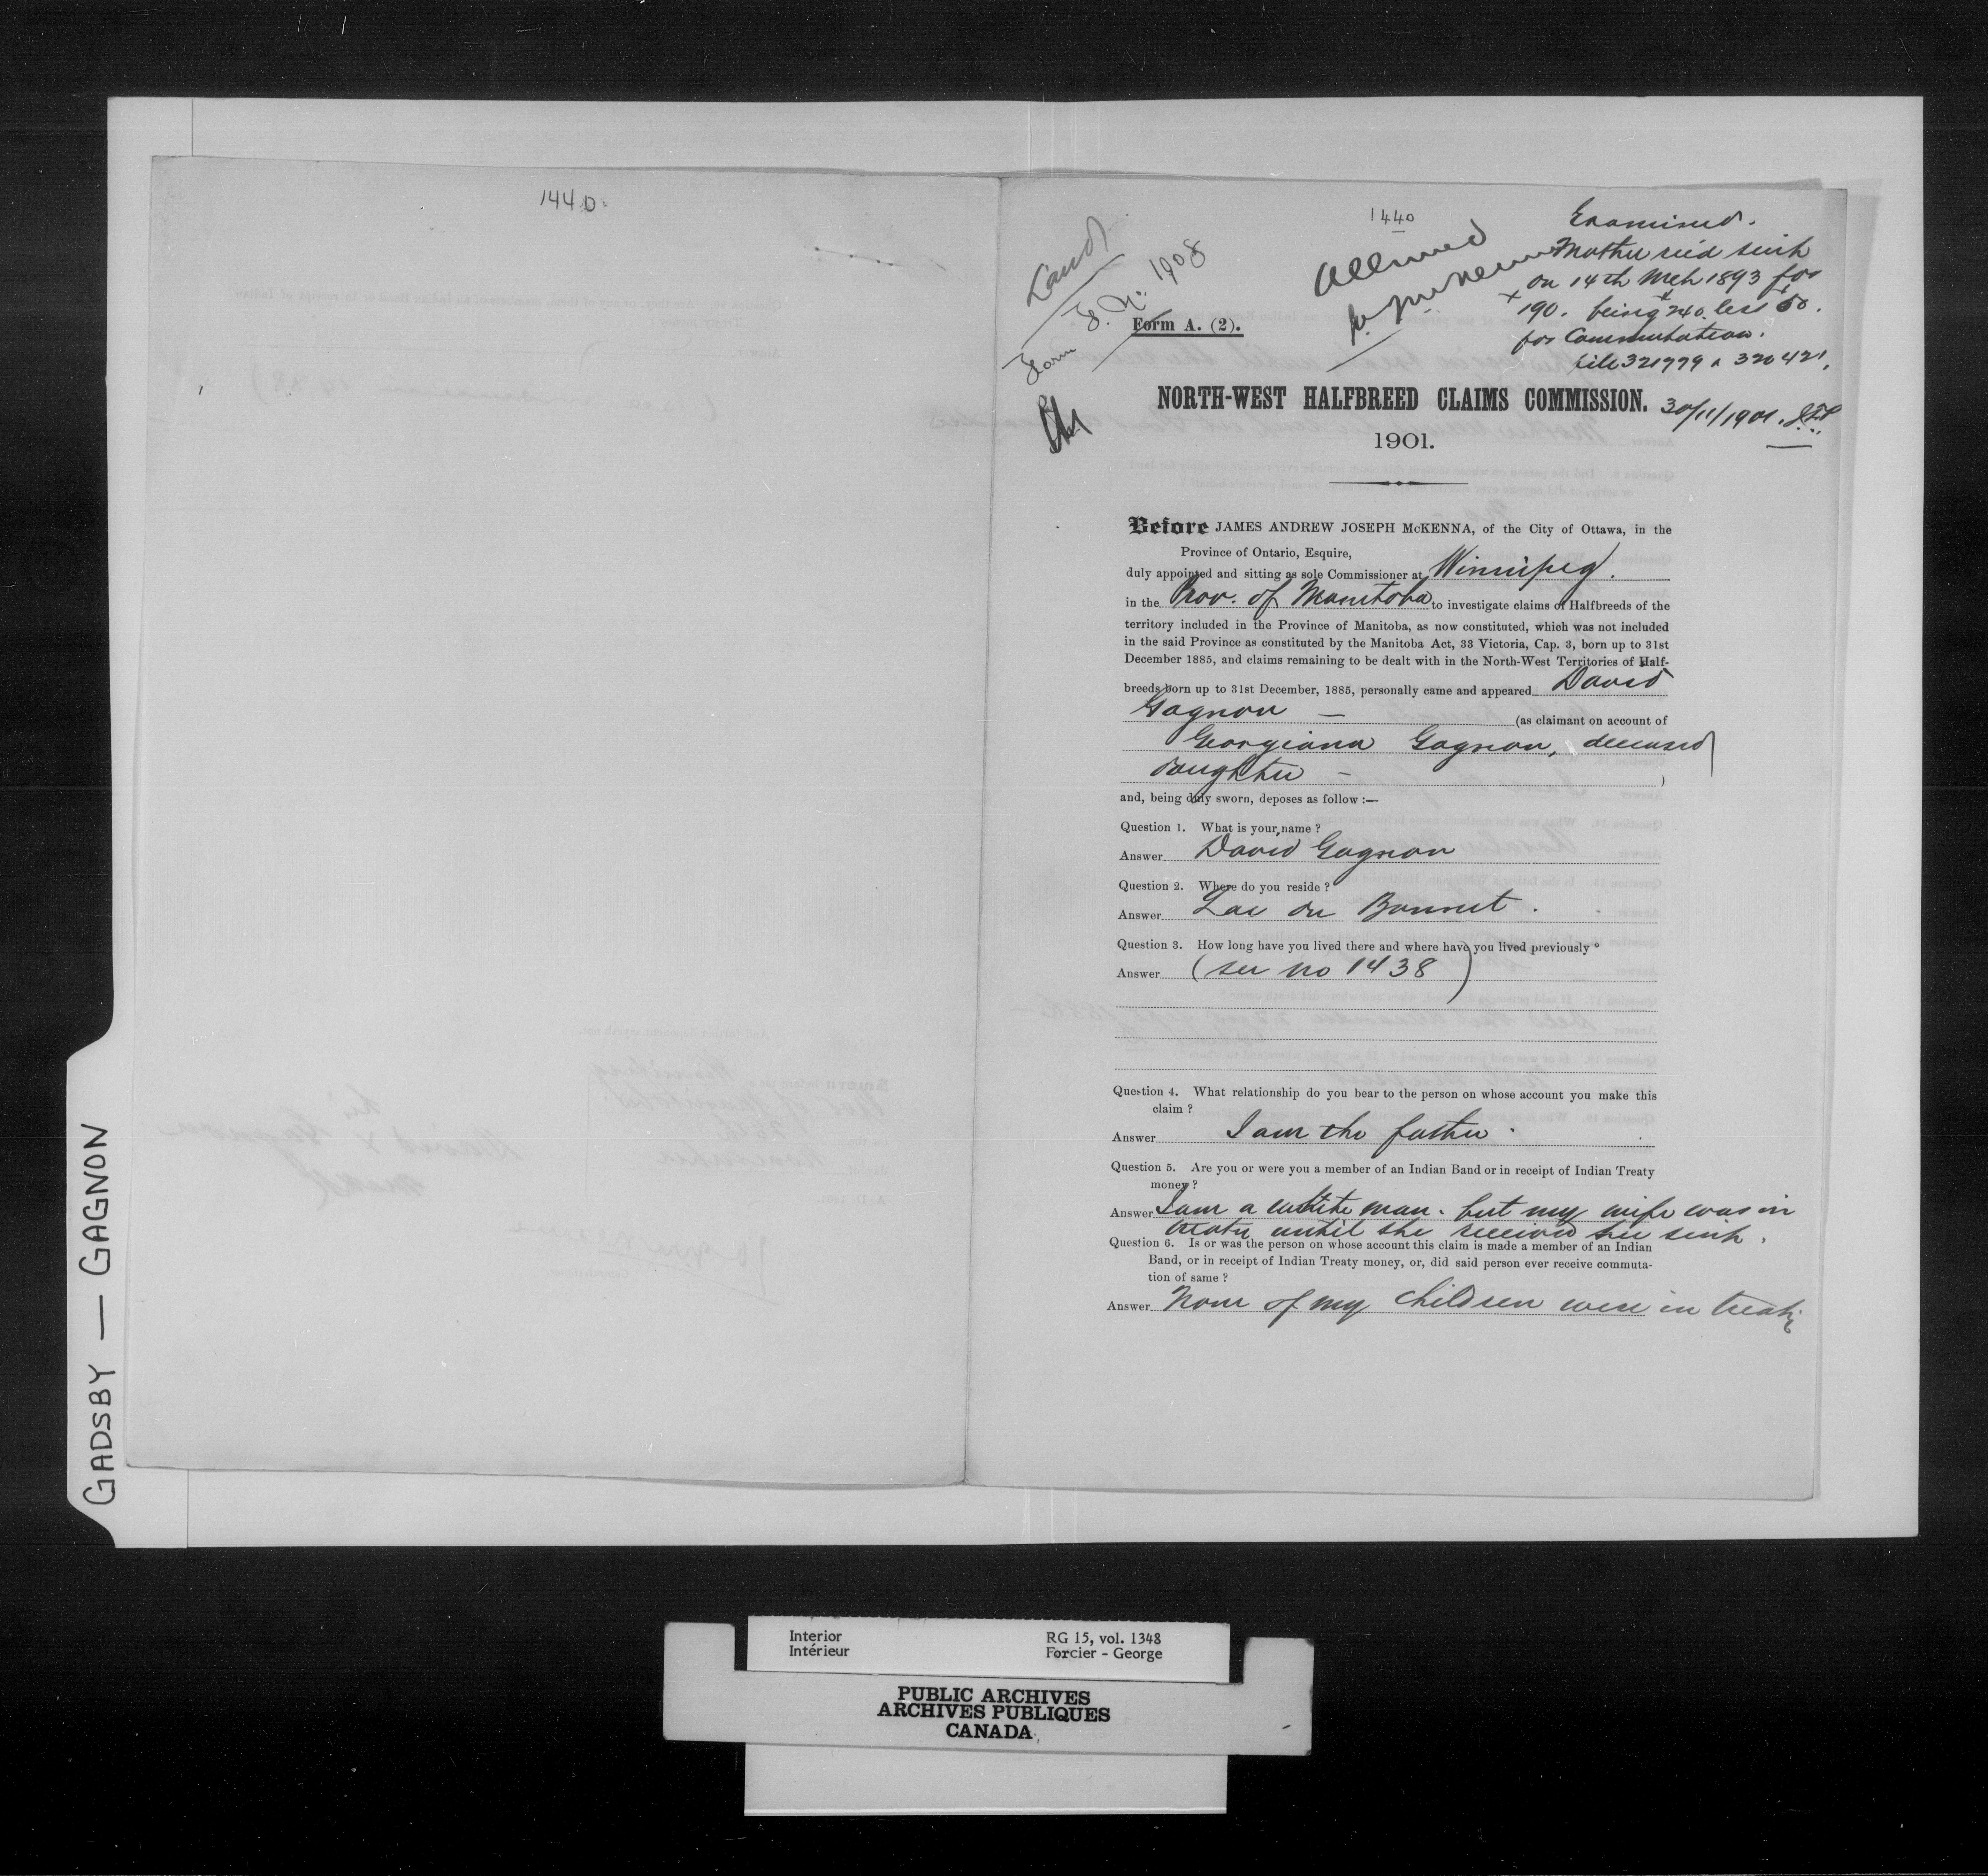 144D
1440
Land
Form F. No. 1908
Form A. (2).
Allowed
Examined.
Mother rec'd scrip
on 14th Mch 1893 for
190. being 240. less 50.
for Commutation.
file 321779 & 320421.
30/11/1901.
NORTH-WEST HALFBREED CLAIMS COMMISSION.
1901.
Before JAMES ANDREW JOSEPH McKENNA, of the City of Ottawa, in the
Province of Ontario, Esquire,
duly appointed and sitting as sole Commissioner at Winnipeg.
in the Prov. of Manitoba to investigate claims of Halfbreeds of the
territory included in the Province of Manitoba, as now constituted, which was not included
in the said Province as constituted by the Manitoba Act, 33 Victoria, Cap. 3, born up to 31st
December 1885, and claims remaining to be dealt with in the North-West Territories of Half-
breeds born up to 31st December, 1885, personally came and appeared David
Gagnon — (as claimant on account of
Georgiana Gagnon, deceased
daughter — )
and, being duly sworn, deposes as follow :—
Question 1. What is your name ?
Answer David Gagnon
Question 2. Where do you reside ?
Answer Lac du Bonnet.
Question 3. How long have you lived there and where have you lived previously ?
Answer (see no 1438)
Question 4. What relationship do you bear to the person on whose account you make this
claim ?
Answer I am the father.
Question 5. Are you or were you a member of an Indian Band or in receipt of Indian Treaty
money ?
Answer I am a white man. but my wife was in
treaty until she received her scrip.
Question 6. Is or was the person on whose account this claim is made a member of an Indian
Band, or in receipt of Indian Treaty money, or, did said person ever receive commuta-
tion of same ?
Answer None of my children were in treaty
GADSBY — GAGNON
Interior
Intérieur
RG 15, vol. 1348
Forcier - George
PUBLIC ARCHIVES
ARCHIVES PUBLIQUES
CANADA